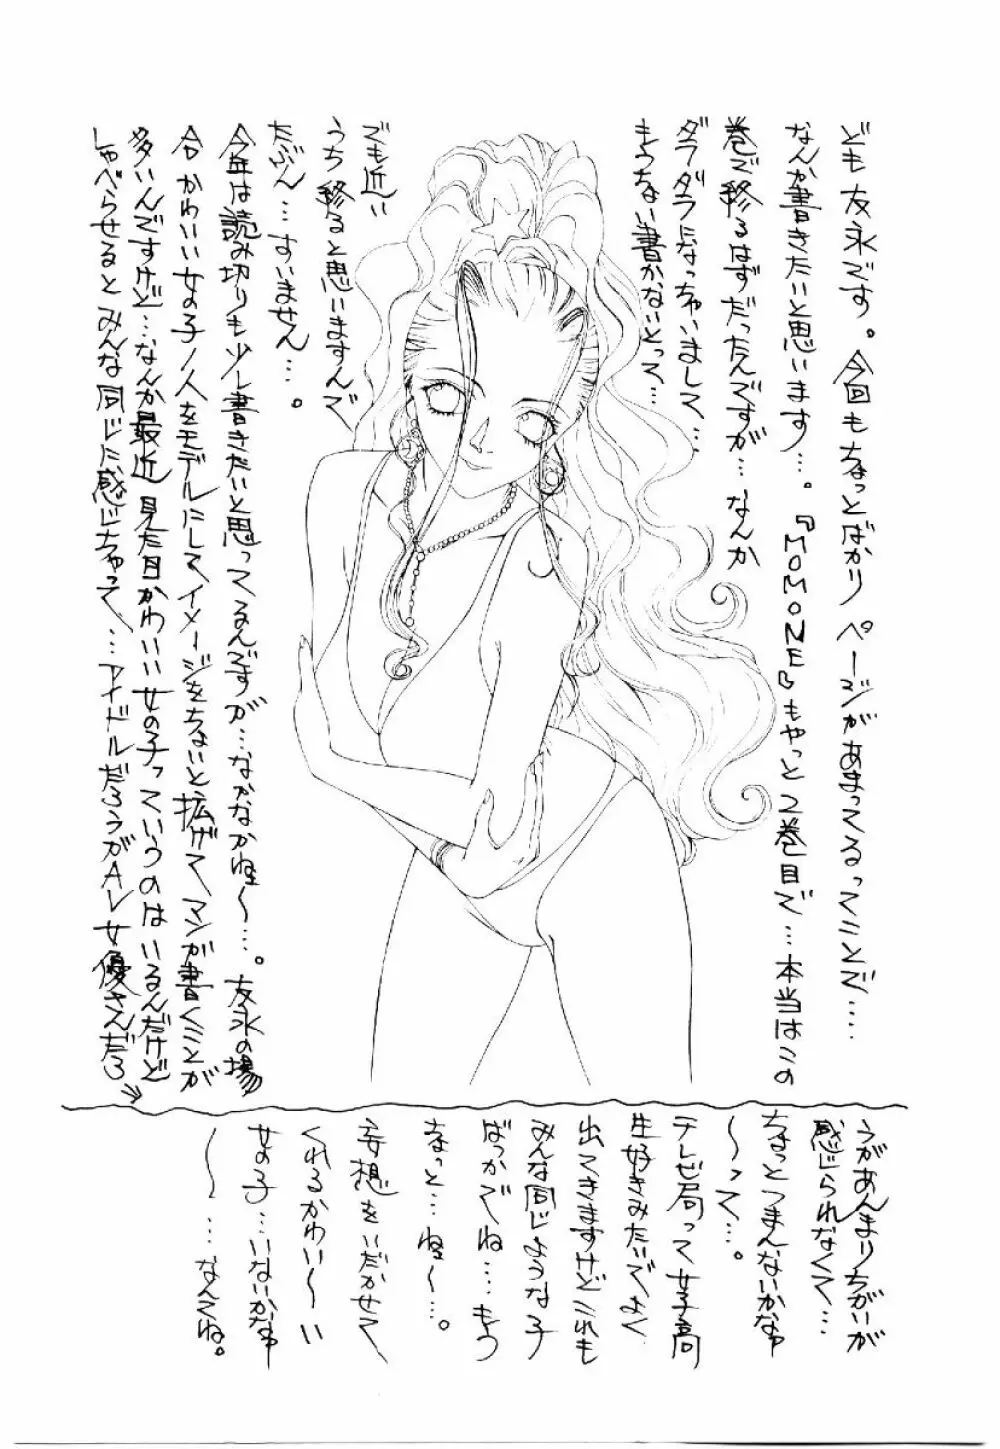 ども友永です。今回もちょっとばかりページがあまってるってことで……
なんか書きたいと思います…。『MOMONE』もやっと2巻目で…本当はこの
巻で終るはずだったんですが…なんか
ダラダラになっちゃいまして……
もうちょい書かないとって…
でも近い
うち終ると思いますんで
たぶん…すいません…。
今年は読み切りも少し書きたいと思ってるんですが…なかなかね〜…。友永の場
合かわいい女の子1人をモデルにしてイメージをちょいと拡げてマンガ書くことが
多いんですけど…なんか最近見た目かわいい女の子っていうのはいるんだけど
しゃべらせるとみんな同じに感じちゃって…アイドルだろうがAV女優さんだろ
うがあんまりちがいが
感じられなくて…
ちょっとつまんないかなァ
〜って…。
テレビ局って女子高
生好きみたいでよく
出てきますけどこれも
みんな同じような子
ばっかでね……もう
ちょっと…ね〜…。
妄想をいだかせて
くれるかわい〜い
女の子…いないかなァ
〜…なんてね。